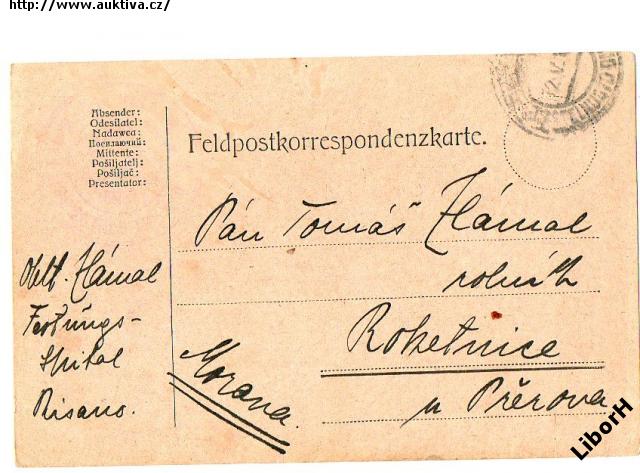 http://www.auktiva.cz/
Absender:
Odesílatel:
Nadawca:
Посилаючий:
Mittente:
Pošiljatelj:
Pošiljač:
Presentator:
Feldpostkorrespondenzkarte.
Pán Tomáš Hámal
rolník
Roketnice
u Přerova
Morava.
Oblt. Hámal
Festungs-
Spital
Risano.
LiborH